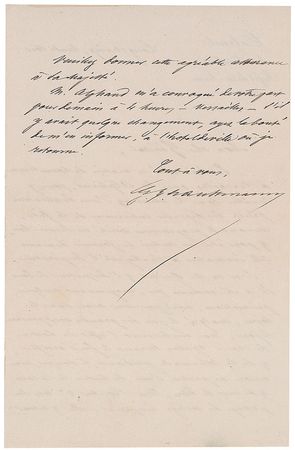 Veuillez donner cette agréable assurance
à Sa Majesté.
M. Alphand m'a convoqué de votre part
pour demain à 2 heures – Versailles – S'il
y avait quelque changement, ayez la bonté
de m'en informer, à l'hôtel de ville où je
retourne.
Tout à vous,
G. E. Haussmann